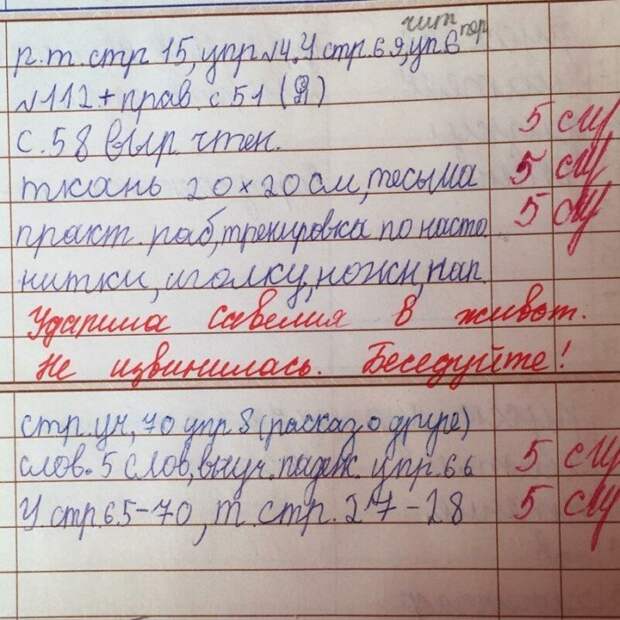 чит пер
р.т. стр 15, упр №4. У стр. 69, уп. 6
№112 + прав. с 51 (Я)
с. 58 выр. чтен. 5
ткань 20 × 20 см, тесьма 5
практ. раб, тренировка по насто 5
нитки, иголку, ножн, пап.
Ударила Савелия в живот.
Не извинилась. Беседуйте!
стр. уч, 70 упр 8 (расказ о друге)
слов. 5 слов, выуч. падеж. упр. 66 5
У стр. 65-70, т. стр. 27-28 5